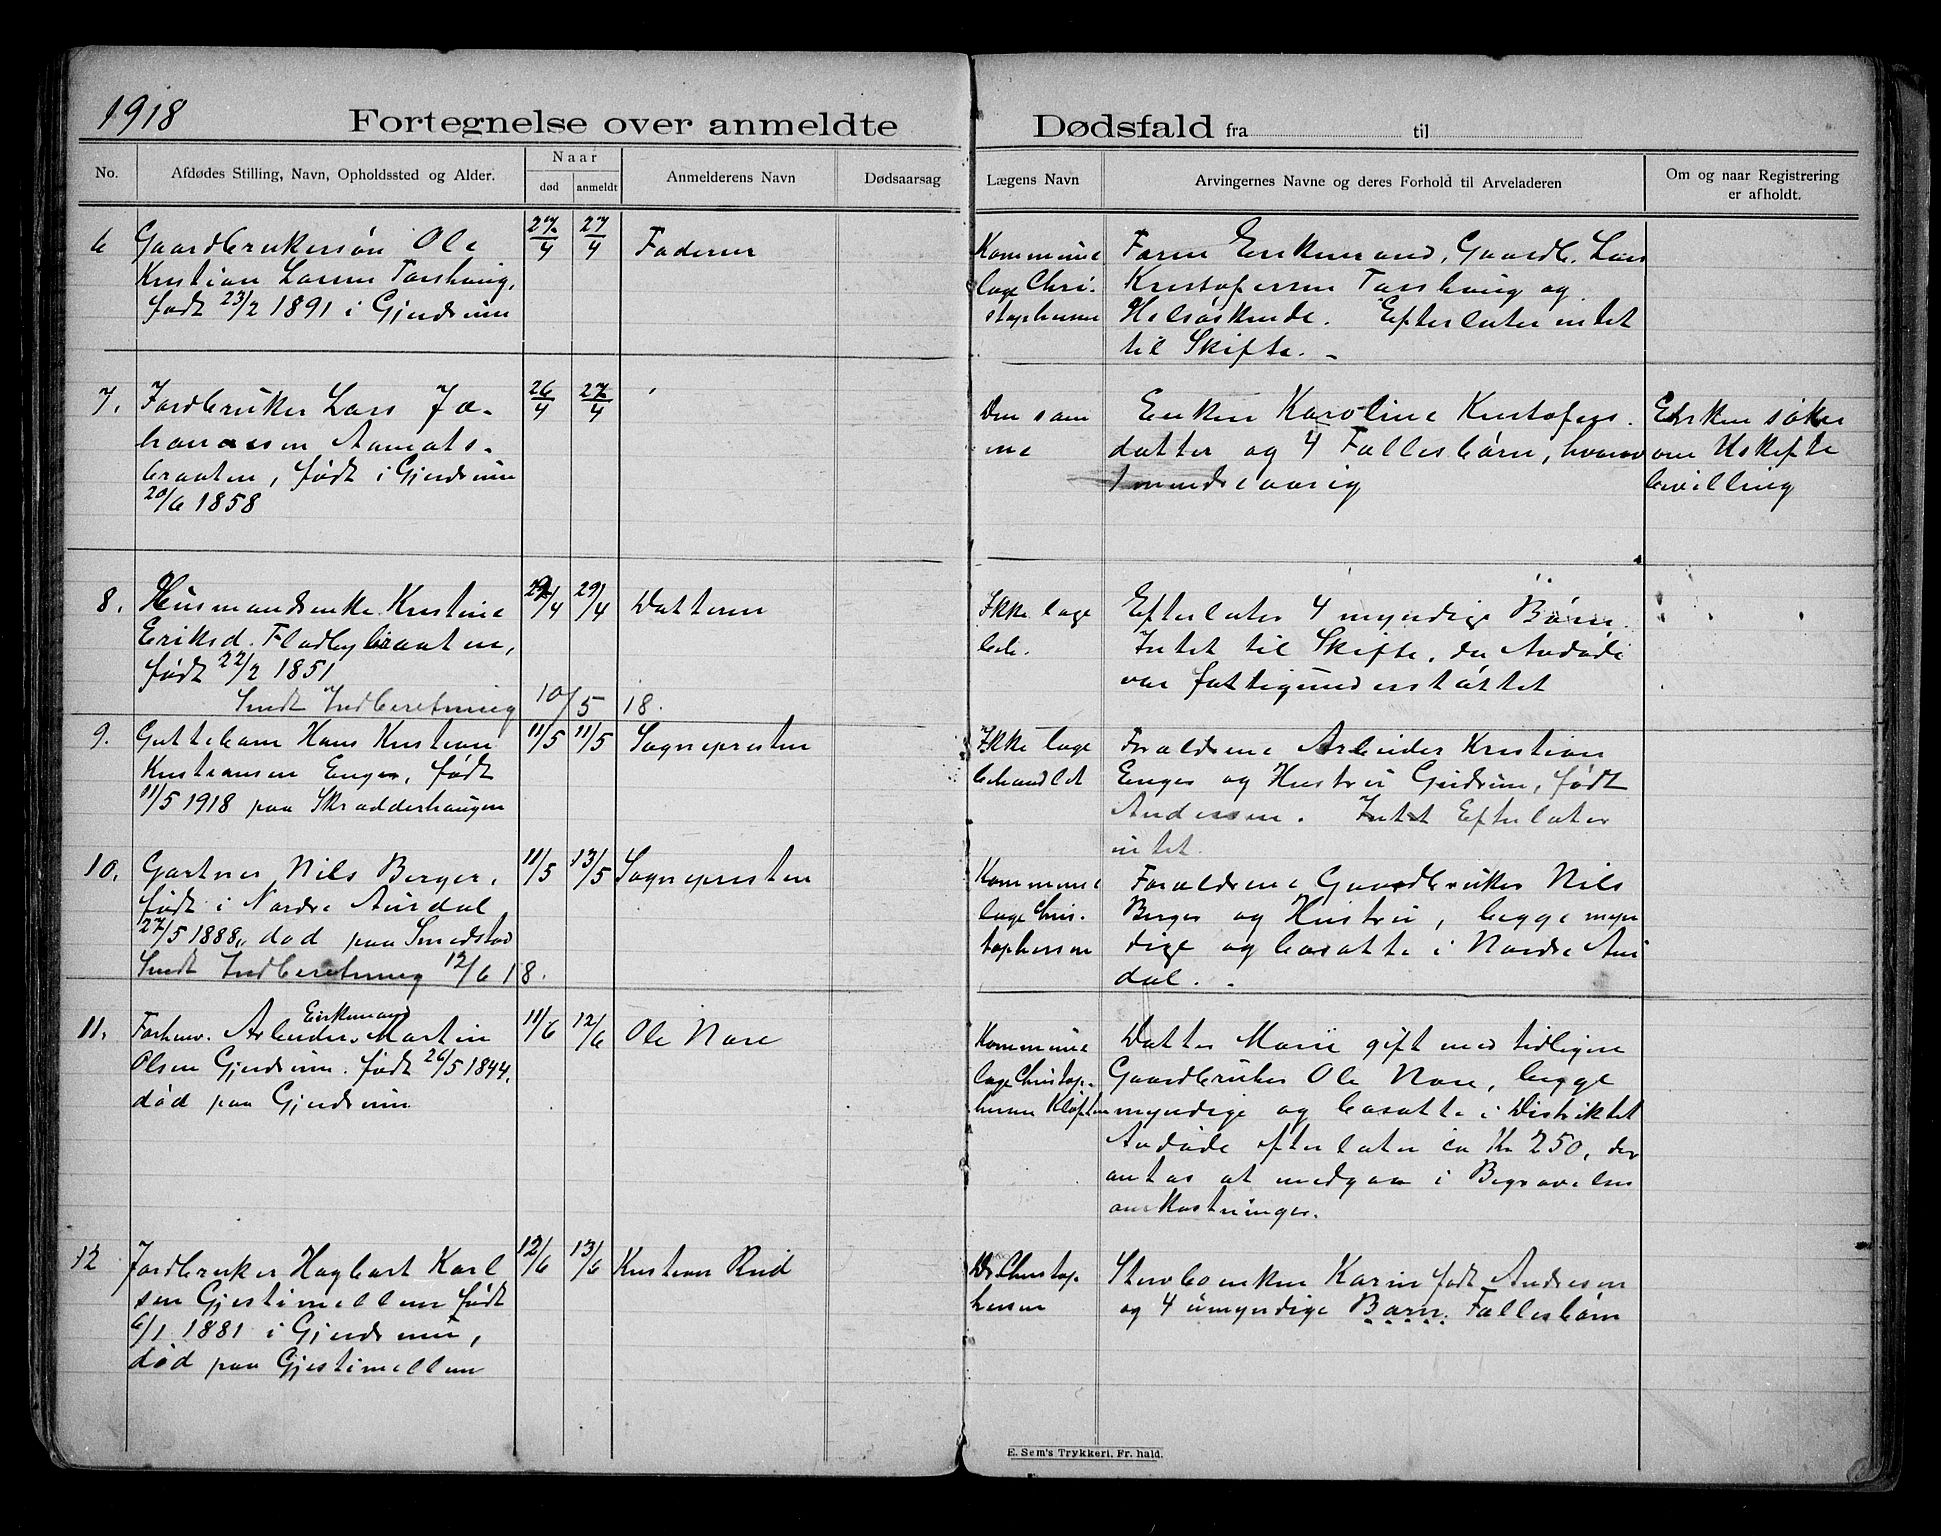 1918
Fortegnelse over anmeldte Dødsfald fra til
No.
Afdødes Stilling, Navn, Opholdssted og Alder.
Naar
død
anmeldt
Anmelderens Navn
Dødsaarsag
Lægens Navn
Arvingernes Navne og deres Forhold til Arveladeren
Om og naar Registrering
er afholdt.
6
Gaardbrukersøn Ole
Kristian Larsen Torshaug,
født 23/2 1891 i Gjerdrum
27/4
27/4
Faderen
Kommune
læge Chri-
stophersen
Faren Enkemand, Gaardb. Lars
Kristofersen Torshaug og
Helsøskende. Efterlater intet
til Skifte. -
7.
Jordbruker Lars Jo-
hannessen Aamots-
braaten, født i Gjerdrum
20/6 1858
26/4
27/4
Den sam
me
Enken Karoline Kristofers.
datter og 4 Fællesbørn, hvorav
1 mindreaarig
Enken søker
om Uskifte
bevilling
8.
Husmandsenke Kristine
Eriksd. Fladbybraaten,
født 22/2 1851
29/4
29/4
Datteren
Ikke læge
beh.
Efterlater 4 myndige Børn.
Intet til Skifte, da Avdøde
var fattigunderstøttet
Sendt Indberetning 10/5 18.
9.
Guttebarn Hans Kristian
Kristiansen Enger, født
11/5 1918 paa Skrædderhaugen
11/5
11/5
Sognepresten
Ikke læge
behandlet
Forældrene Arbeider Kristian
Enger og Hustru Gudrun, født
Andersen. Intet Efterlater
intet.
10.
Gartner Nils Berger,
født i Nordre Aurdal
27/5 1888, død paa Smedstad
11/5
13/5
Sognepresten
Kommune
læge Chris-
tophersen
Forældrene Gaardbruker Nils
Berger og Hustru, begge myn
dige og bosatte i Nordre Aur
dal.
Sendt Indberetning 12/6 18.
11.
Enkemand
Forhenv. Arbeider Martin
Olsen Gjerdrum. født 26/5 1844,
død paa Gjerdrum
11/6
12/6
Ole Nare
Kommune
læge Christop-
hersen Kløften
Datter Marie gift med tidligere
Gaardbruker Ole Nare, begge
myndige og bosatte i Distriktet
Avdøde efterlater ca Kr 250, der
antas at medgaa i Begravelses
omkostninger.
12
Jordbruker Hagbart Karl
sen Gjestimellem født
6/1 1881 i Gjerdrum,
død paa Gjestimellem
12/6
13/6
Kristian Rud
Dr Christop
hersen
Stervboenken Karin født Andresen
og 4 umyndige Børn. Fællesbørn
E. Sem's Trykkeri, Fr. hald.